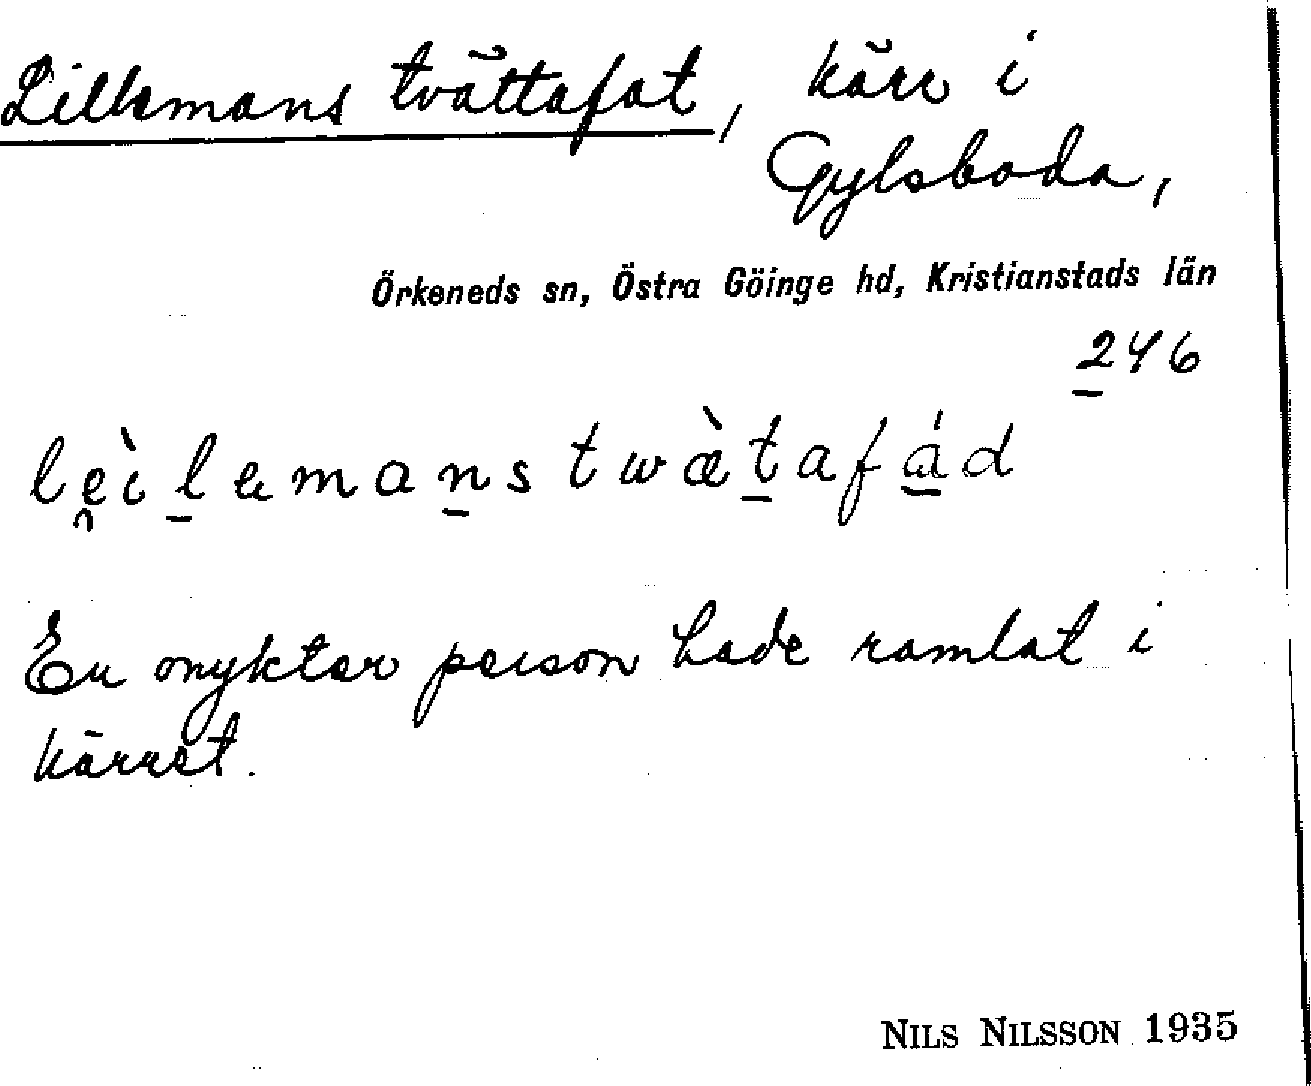 Lillemans tvättafat, kärr i
Gylsboda,
Örkeneds sn, Östra Göinge hd, Kristianstads län
246
lèilemans twætafád
En onykter person hade ramlat i
kärret.
NILS NILSSON 1935